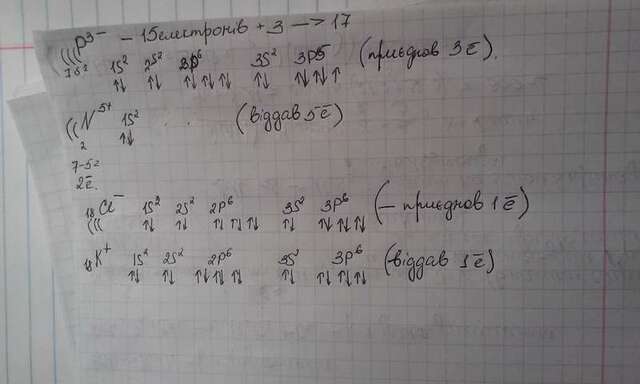 (((P³⁻ – 15електронів + 3 —> 17
1S² 1S² 2S² 3p⁶ 3S² 3P5 (приєднов 3ē).
↑↓ ↑↓ ↑↓ ↑↓ ↑↓ ↑↓ ↑↓ ↑↓ ↑
((N⁵⁺ 1S² (віддав 5ē)
2 ↑↓
7-5=
2ē.
₁₈Cl⁻ 1S² 2S² 2p⁶ 3S² 3p⁶ (– приєднов 1ē)
((( ↑↓ ↑↓ ↑↓ ↑↓ ↑↓ ↑↓ ↑↓ ↑↓ ↑↓
₁₈K⁺ 1S² 2S² 2p⁶ 3S² 3p⁶ (-віддав 1ē)
↑↓ ↑↓ ↑↓ ↑↓ ↑↓ ↑↓ ↑↓ ↑↓ ↑↓